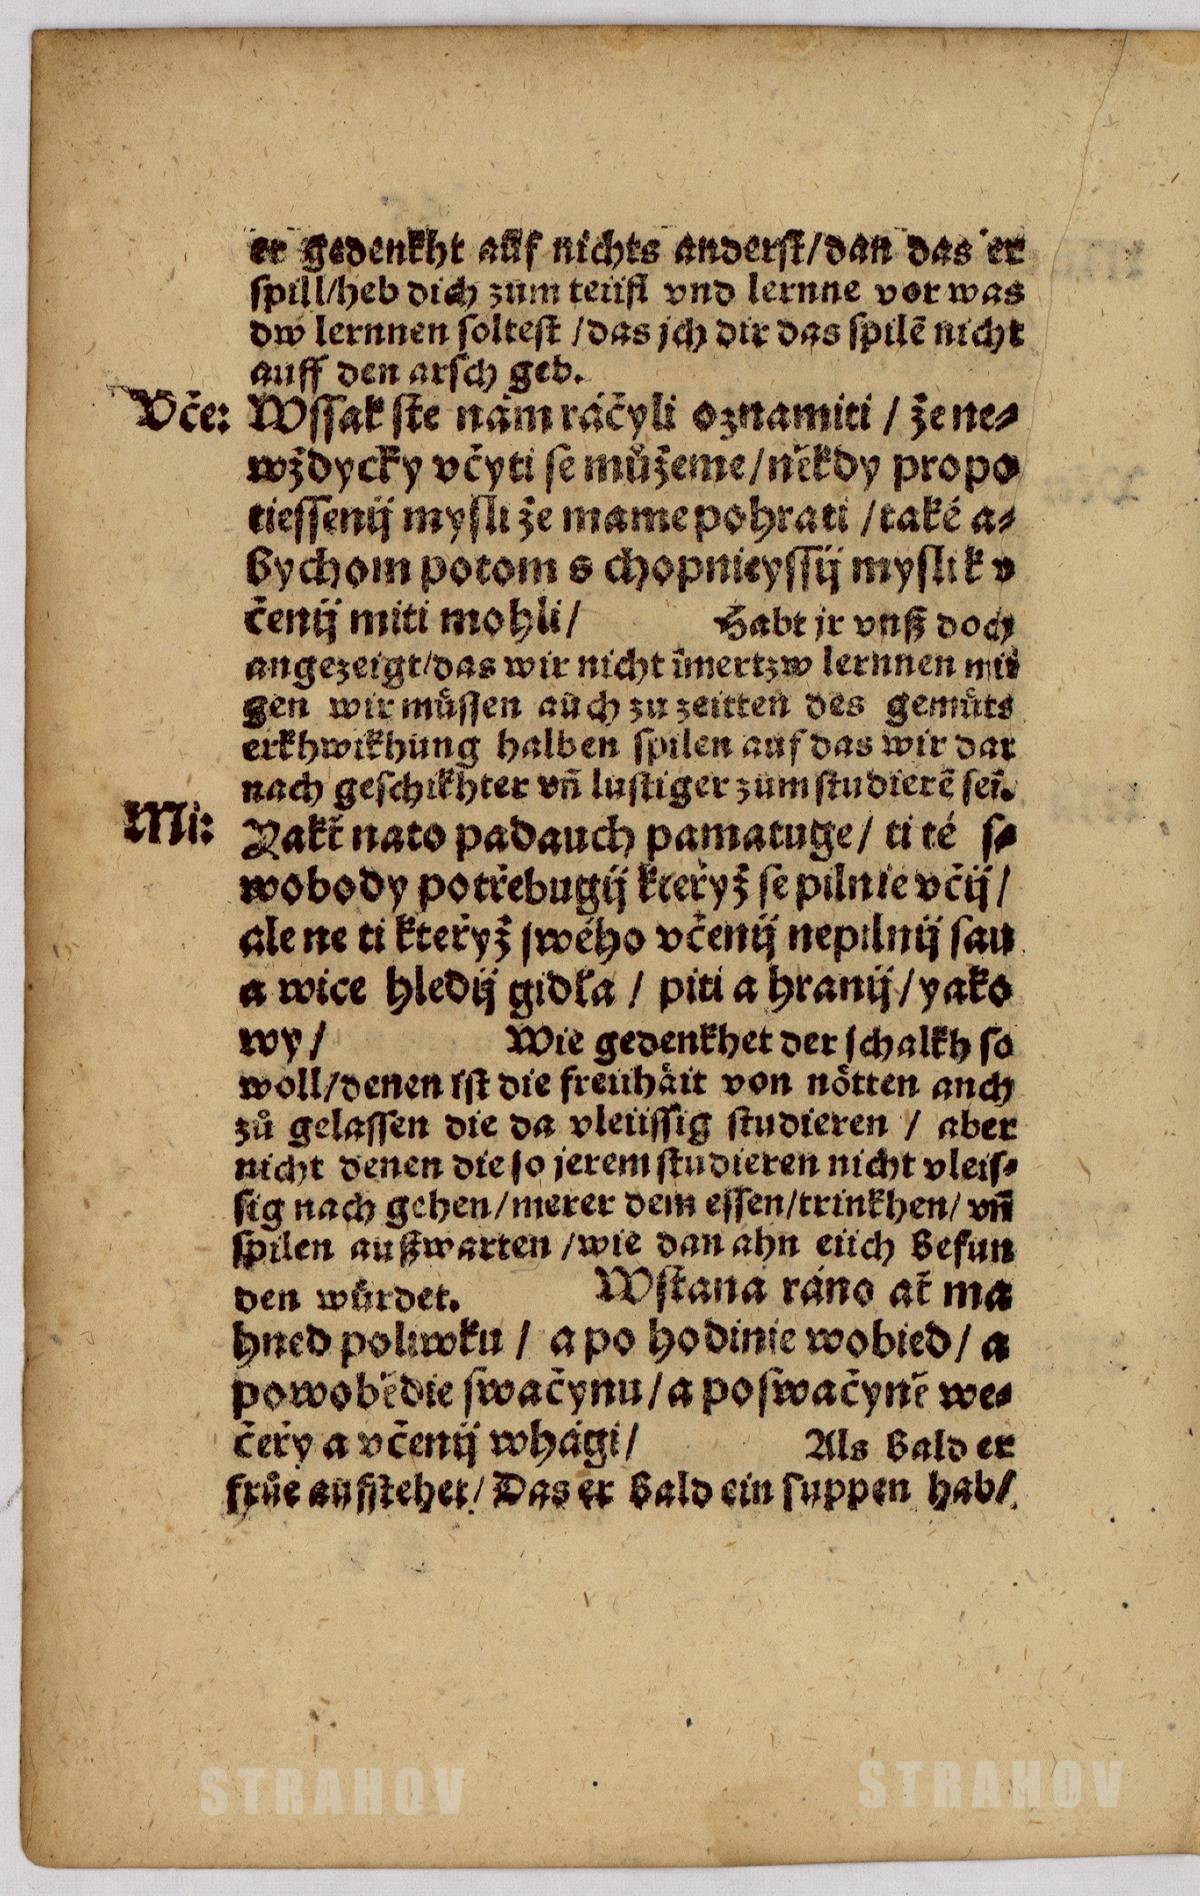 er gedenkht aůf nichts anderst/dan das er
spill/heb dich zům teüfl vnd lernne vor was
dw lernnen soltest /das jch dir das spilē nicht
auff den arsch geb.
Vče: Wssak ste nám ráčyli oznamiti / že ne⸗
wždycky včyti se můžeme/někdy propo
tiessenij mysli že mame pohrati /také a⸗
bychom potom s chopnieyssij mysli k v
čenij miti mohli/ Habt jr vnß doch
angezeigt/das wir nicht īmertzw lernnen mü
gen wir müssen aůch zu zeitten des gemůts
erkhwikhung halben spilen auf das wir dar
nach geschikhter vn̄ lustiger zům studierē sei.
Mi: Pakť nato padauch pamatuge/ ti té s⸗
wobody potřebugij kteřyž se pilnie včij/
ale ne ti kteřyž swého včenij nepilnij sau
a wice hledij gidla / piti a hranij/yako
wy/ Wie gedenkhet der schalkh so
woll/denen ist die freühäit von nötten anch
zů gelassen die da vleüssig studieren / aber
nicht denen die so jerem studieren nicht vleis⸗
sig nach gehen/merer dem essen/trinkhen/ vn̄
spilen außwarten /wie dan ahn eüch befun
den würdet. Wstana ráno ať ma
hned poliwku / a po hodinie wobied/ a
powobědie swačynu/a poswačyně we⸗
čeřy a včenij whági/ Als bald er
früe aufstehet/ Das er bald ein suppen hab/
STRAHOV STRAHOV